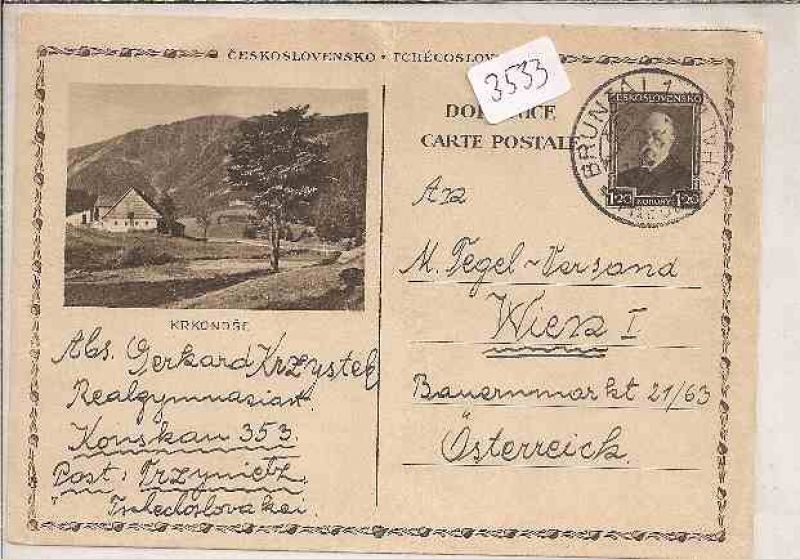 ČESKOSLOVENSKO • TCHÉCOSLOV
3533
DOP NICE
CARTE POSTALE
BRUNTÁL 1
ČESKOSLOVENSKO
1.20 KORUNY 1.20
KRKONOŠE
An
M. Tegel-Versand
Wien I
Bauernmarkt 21/63
Österreich.
Abs. Gerhard Krzystek
Realgymnasiast.
Konskau 353.
Post: Trzynietz.
Tschechoslovakei.